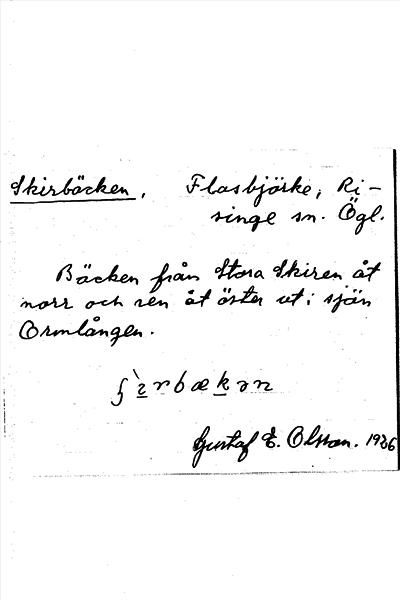 Skirbäcken, Flasbjörke, Ri-
singe sn. Ögl.
Bäcken från Stora Skiren åt
norr och sen åt öster ut i sjön
Ormlången.
Gustaf E. Olsson. 1936